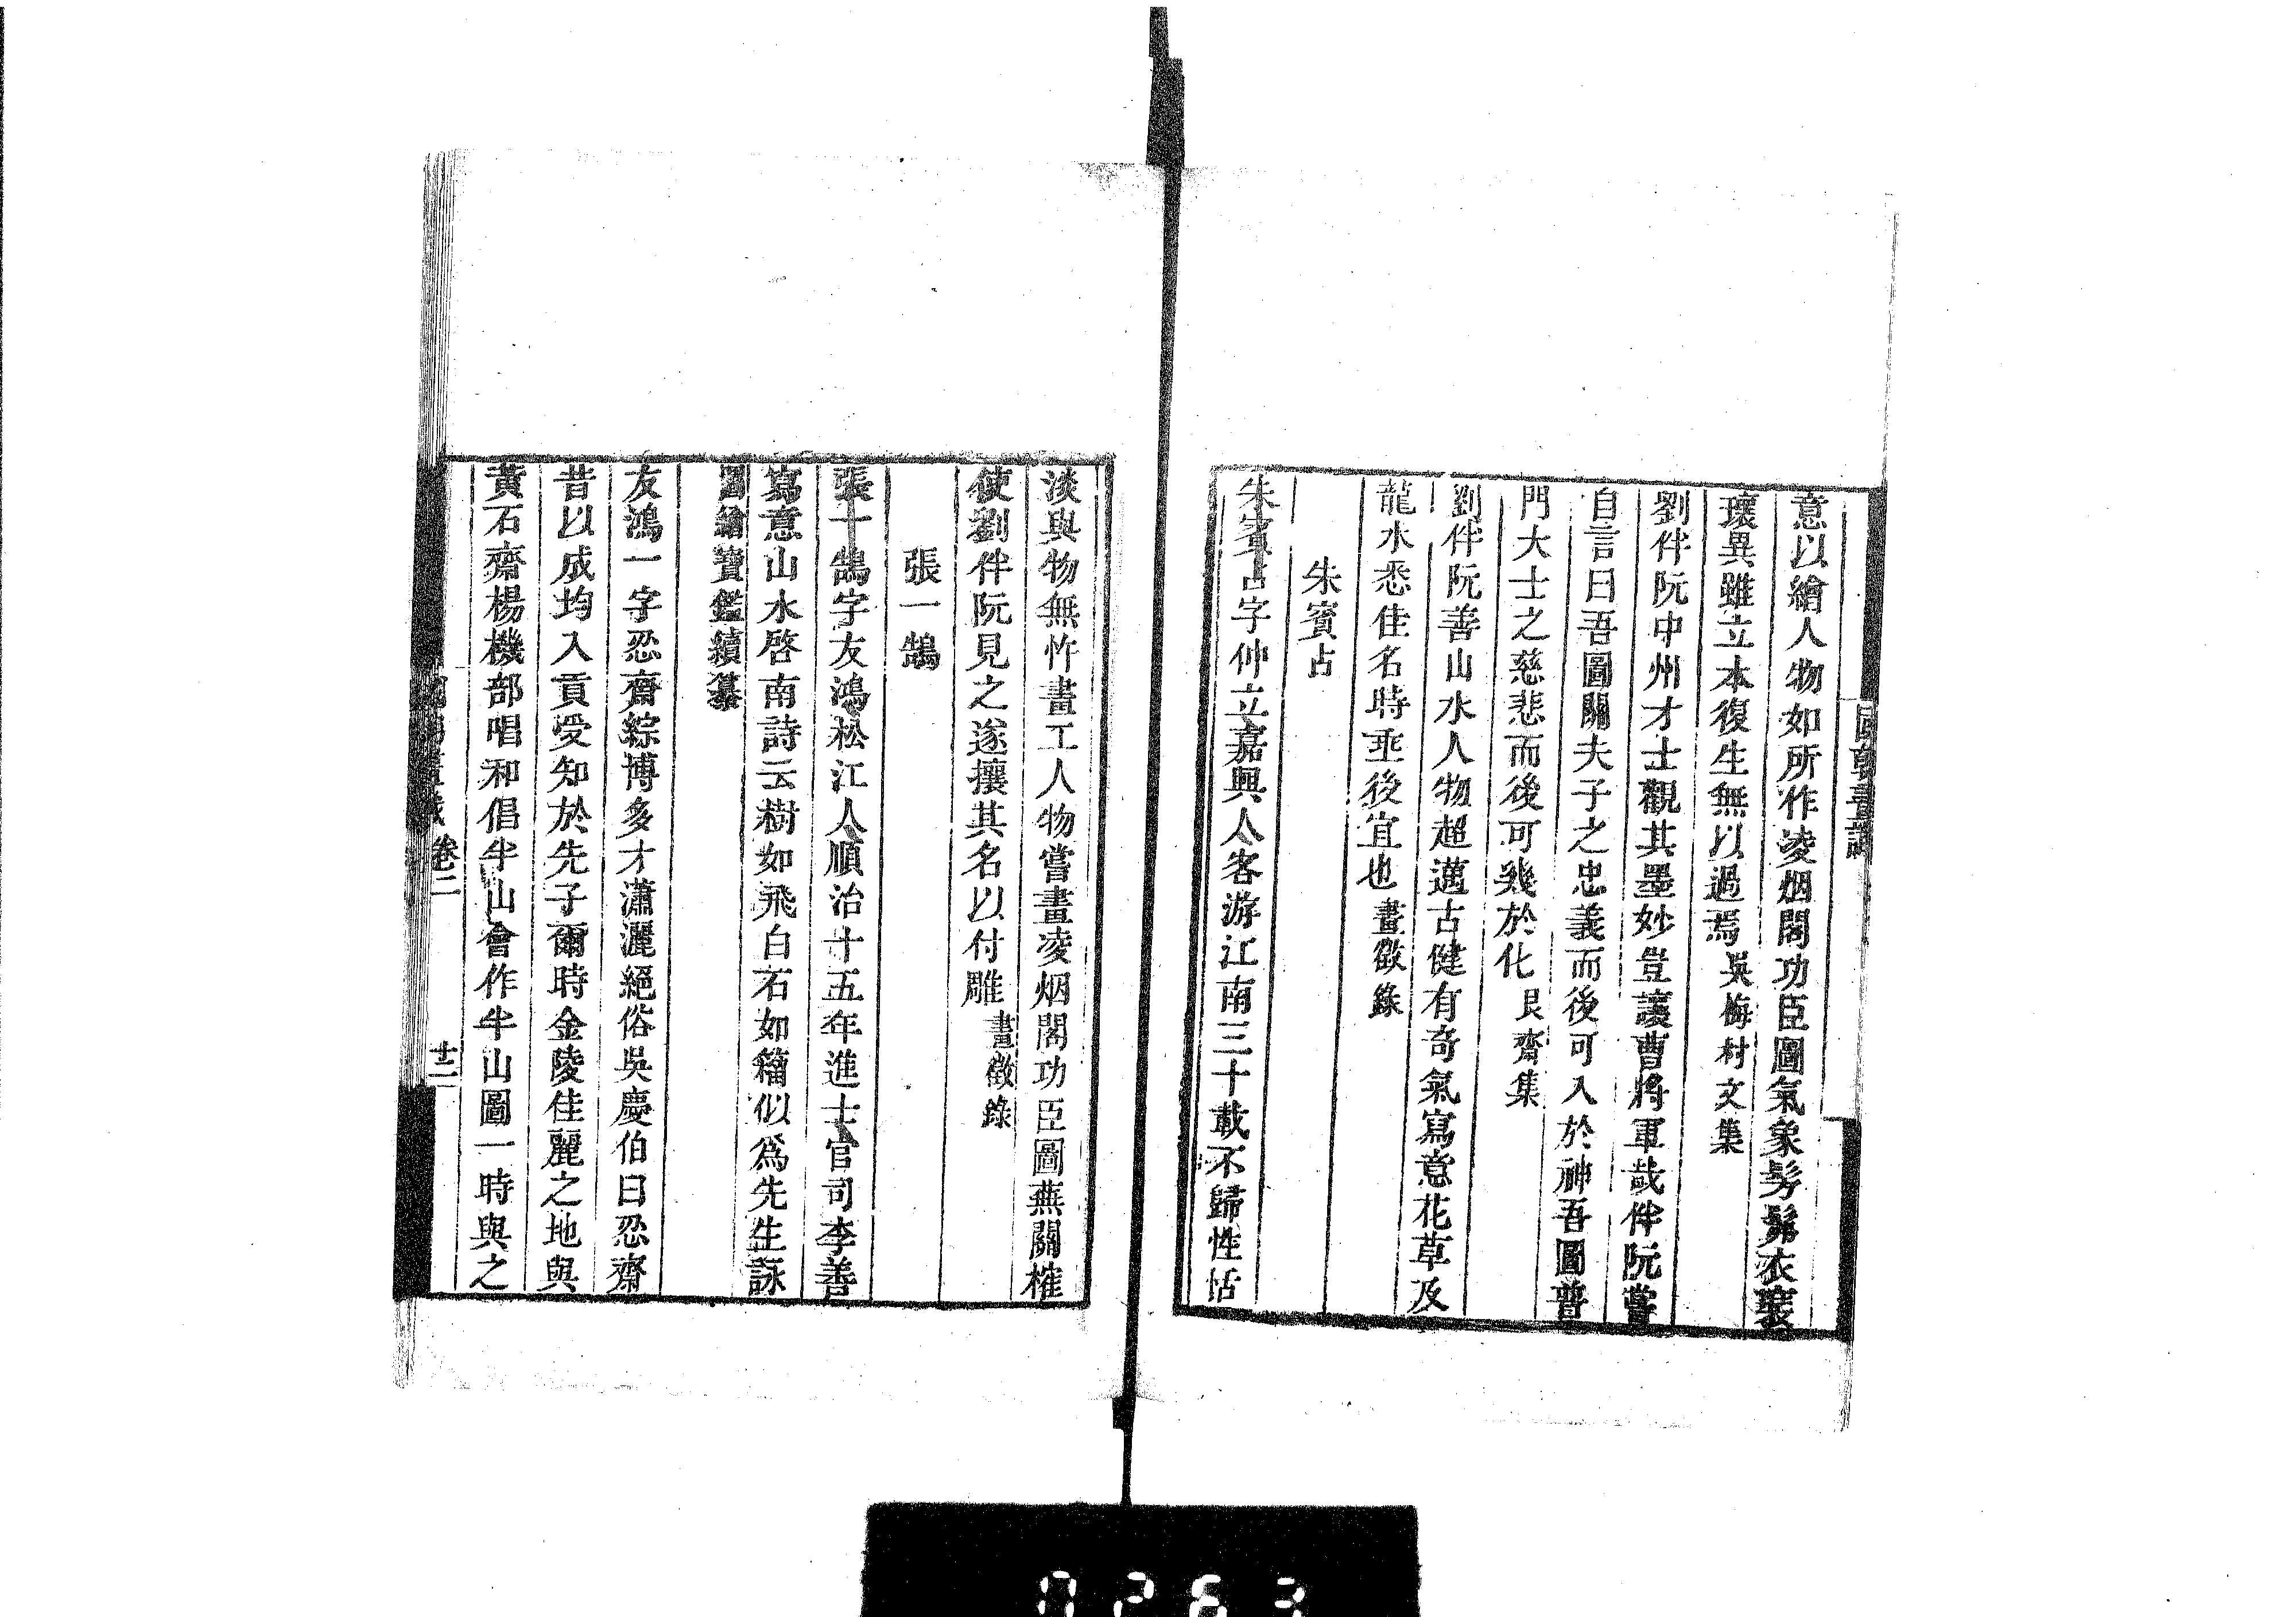 國朝畫識
意以繪人物如所作凌烟閣功臣圖氣象髣髴衣裝
瓌異雖立本復生無以過焉吳梅村文集
劉伴阮中州才士觀其墨妙豈讓曹將軍哉伴阮嘗
自言曰吾圖關夫子之忠義而後可入於神吾圖普
門大士之慈悲而後可幾於化艮齋集
劉伴阮善山水人物超邁古健有奇氣寫意花草及
龍水悉佳名時垂後宜也畫徵錄
朱賓占
朱賓占字仲立嘉興人客游江南三十載不歸性恬
淡與物無忤畫工人物嘗畫凌烟閣功臣圖燕關榷
使劉伴阮見之遂攘其名以付雕畫徵錄
張一鵠
張一鵠字友鴻松江人順治十五年進士官司李善
寫意山水啓南詩云樹如飛白石如籀似爲先生詠
圖繪寶鑑續纂
友鴻一字忍齋綜博多才瀟灑絕俗吳慶伯曰忍齋
昔以成均入貢受知於先子爾時金陵佳麗之地與
黃石齋楊機部唱和倡半山會作半山圖一時與之
卷二
十二
0263